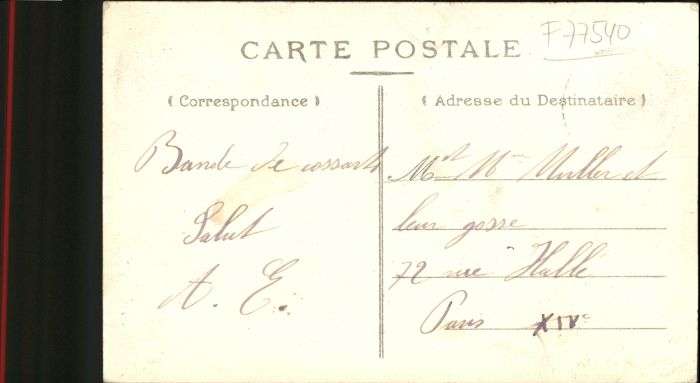 CARTE POSTALE
F 77540
( Correspondance )
( Adresse du Destinataire )
Bande de cossards
Salut
A. E.
Mr et Me Muller et
leur gosse
72 rue Hallé
Paris XIVe